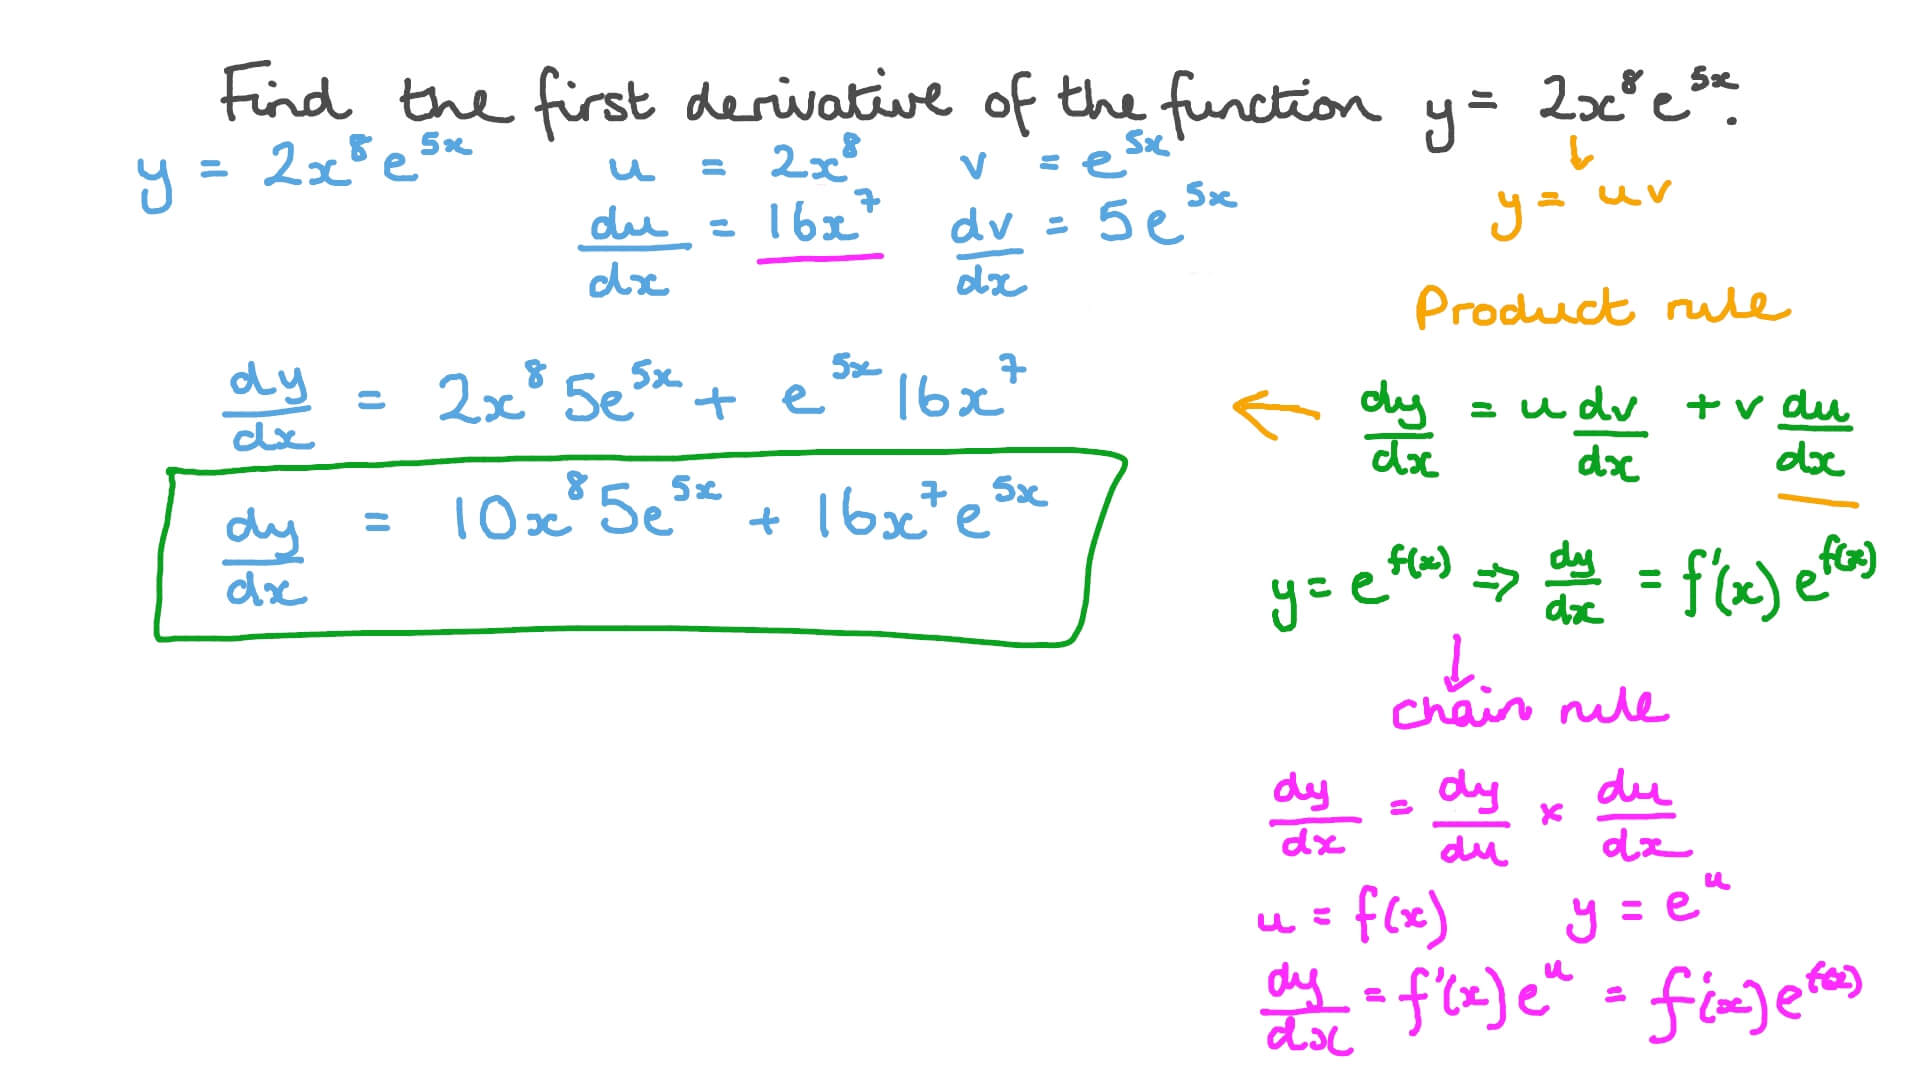 Find the first derivative of the function y = 2x⁸e⁵ˣ.
y = 2x⁸e⁵ˣ u = 2x⁸ v = e⁵ˣ
y = uv
du/dx = 16x⁷ dv/dx = 5e⁵ˣ
Product rule
dy/dx = 2x⁸5e⁵ˣ + e⁵ˣ16x⁷
dy/dx = u dv/dx + v du/dx
dy/dx = 10x⁸5e⁵ˣ + 16x⁷e⁵ˣ
y = e^f(x) ⇒ dy/dx = f'(x)e^f(x)
chain rule
dy/dx = dy/du × du/dx
u = f(x) y = eᵘ
dy/dx = f'(x)eᵘ = f'(x)e^f(x)